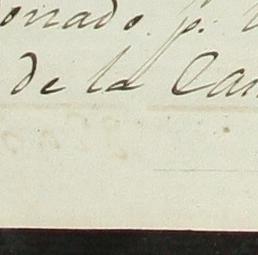 onado. p.
de la Can